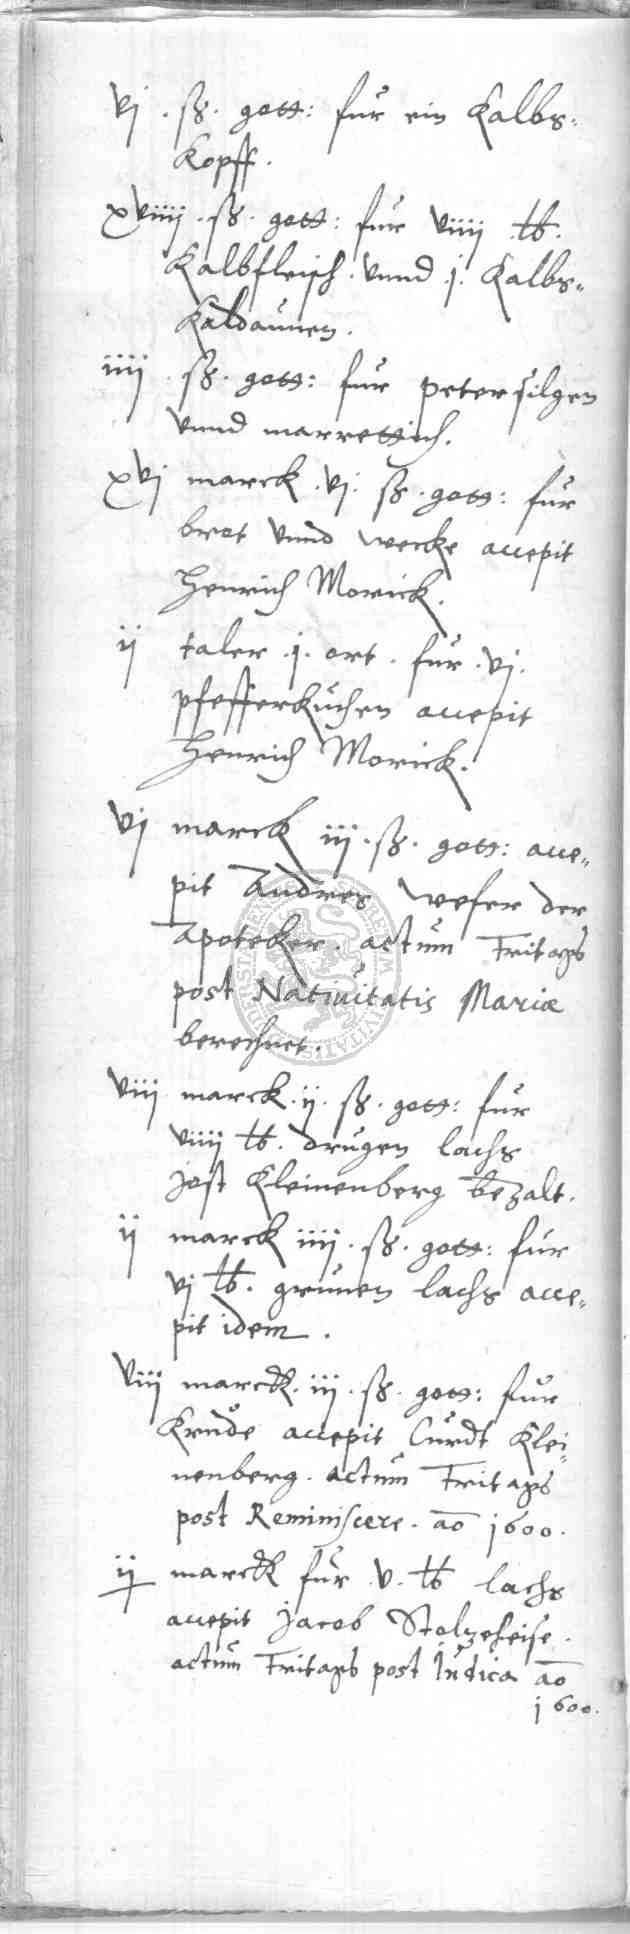 vj . ß. gott: fur ein Kalbs-
Kopff.
xviiij . ß. gott: fur viiij lb.
Kalbfleisch. vnnd .j. Kalbs-
Kaldaunen.
iiij . ß. gott: fur petersilgen
vnnd marrettich.
xvj marck .vj. ß. gott: fur
brot vnnd wecke accepit
Henrich Morick.
ij taler .j. ort. fur .vj.
pfefferkuchen accepit
Henrich Morick.
vj marck iij. ß. gott: acce-
pit Andres wefer der
Apoteker. actum Fritags
post Natiuitatis Mariæ
berechnet.
viij marck .ij. ß. gott: fur
viiij lb. drugen lachs
Jost Kleinenberg bezalt.
ij marck iiij. ß. gott: fur
vj lb. grunen lachs acce-
pit idem.
viij marck. iij. ß. gott: fur
Krude accepit Curdt Klei-
nenberg. actum Fritags
post Reminiscere. ao 1600.
ij marck fur .v. lb lachs
accepit Jacob Stolzeheise.
actum Fritags post Judica ao
1600.